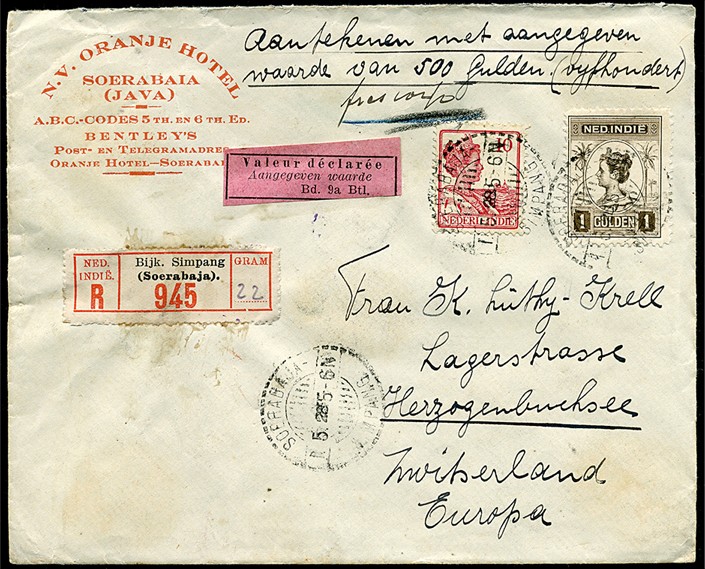 N.V. ORANJE HOTEL
SOERABAIA
(JAVA)
A.B.C.-CODES 5TH. EN 6TH. ED.
BENTLEY'S
POST- EN TELEGRAMADRES
ORANJE HOTEL-SOERABAI
Aantekenen met aangegeven
waarde van 500 Gulden. (vyfhondert)
Valeur déclarée
Aangegeven waarde
Bd. 9a Btl.
10
NEDERL INDIE
NED. INDIË
1 GULDEN 1
NED.
INDIË.
R
Bijk. Simpang
(Soerabaja).
945
GRAM
22
Frau K. Lüthy-Krell
Lagerstrasse
Herzogenbuchsee
Zwitserland
Europa
SOERABAJA-
5.28 5-6N